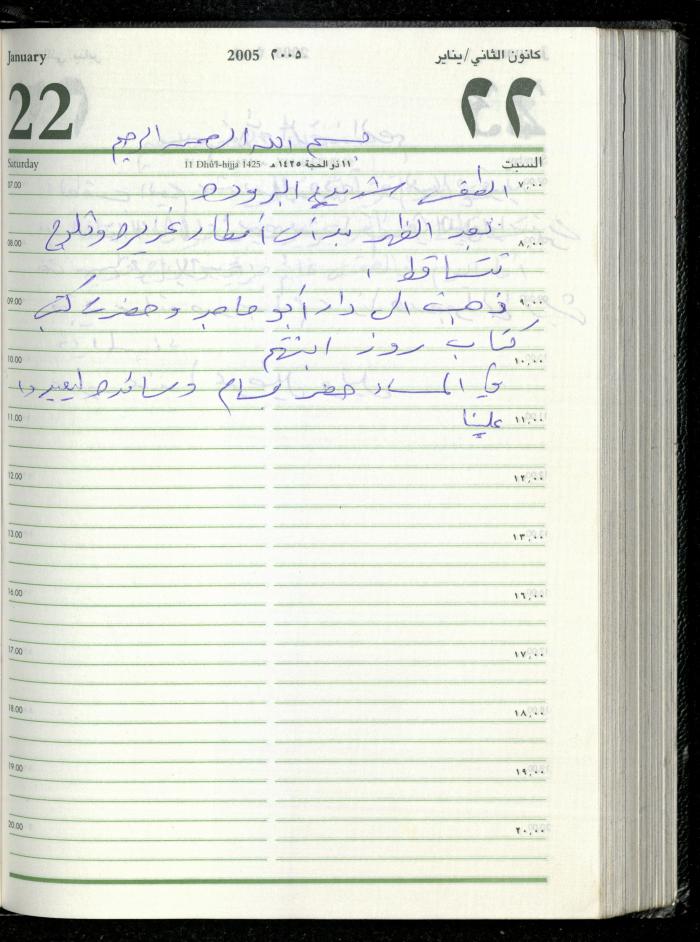 January 2005 ٢٠٠٥ كانون الثاني/يناير
22 ٢٢
بسم الله الرحمن الرحيم
Saturday 11 Dhû'l-hijja 1425 ١١ ذو الحجة ١٤٢٥هـ السبت
07.00 الطقس شديد البروده ٧,٠٠
08.00 بعد الظهر بدأت أمطار غزيره وثلوج ٨,٠٠
تتساقط
09.00 ذهبت الى دار أبو ماجد وحضرت كتب ٩,٠٠
كتاب روز ابنتهم
10.00 ١٠,٠٠
في المساء حضر بسام وسائده ليعيدوا
11.00 علينا ١١,٠٠
12.00 ١٢,٠٠
13.00 ١٣,٠٠
16.00 ١٦,٠٠
17.00 ١٧,٠٠
18.00 ١٨,٠٠
19.00 ١٩,٠٠
20.00 ٢٠,٠٠